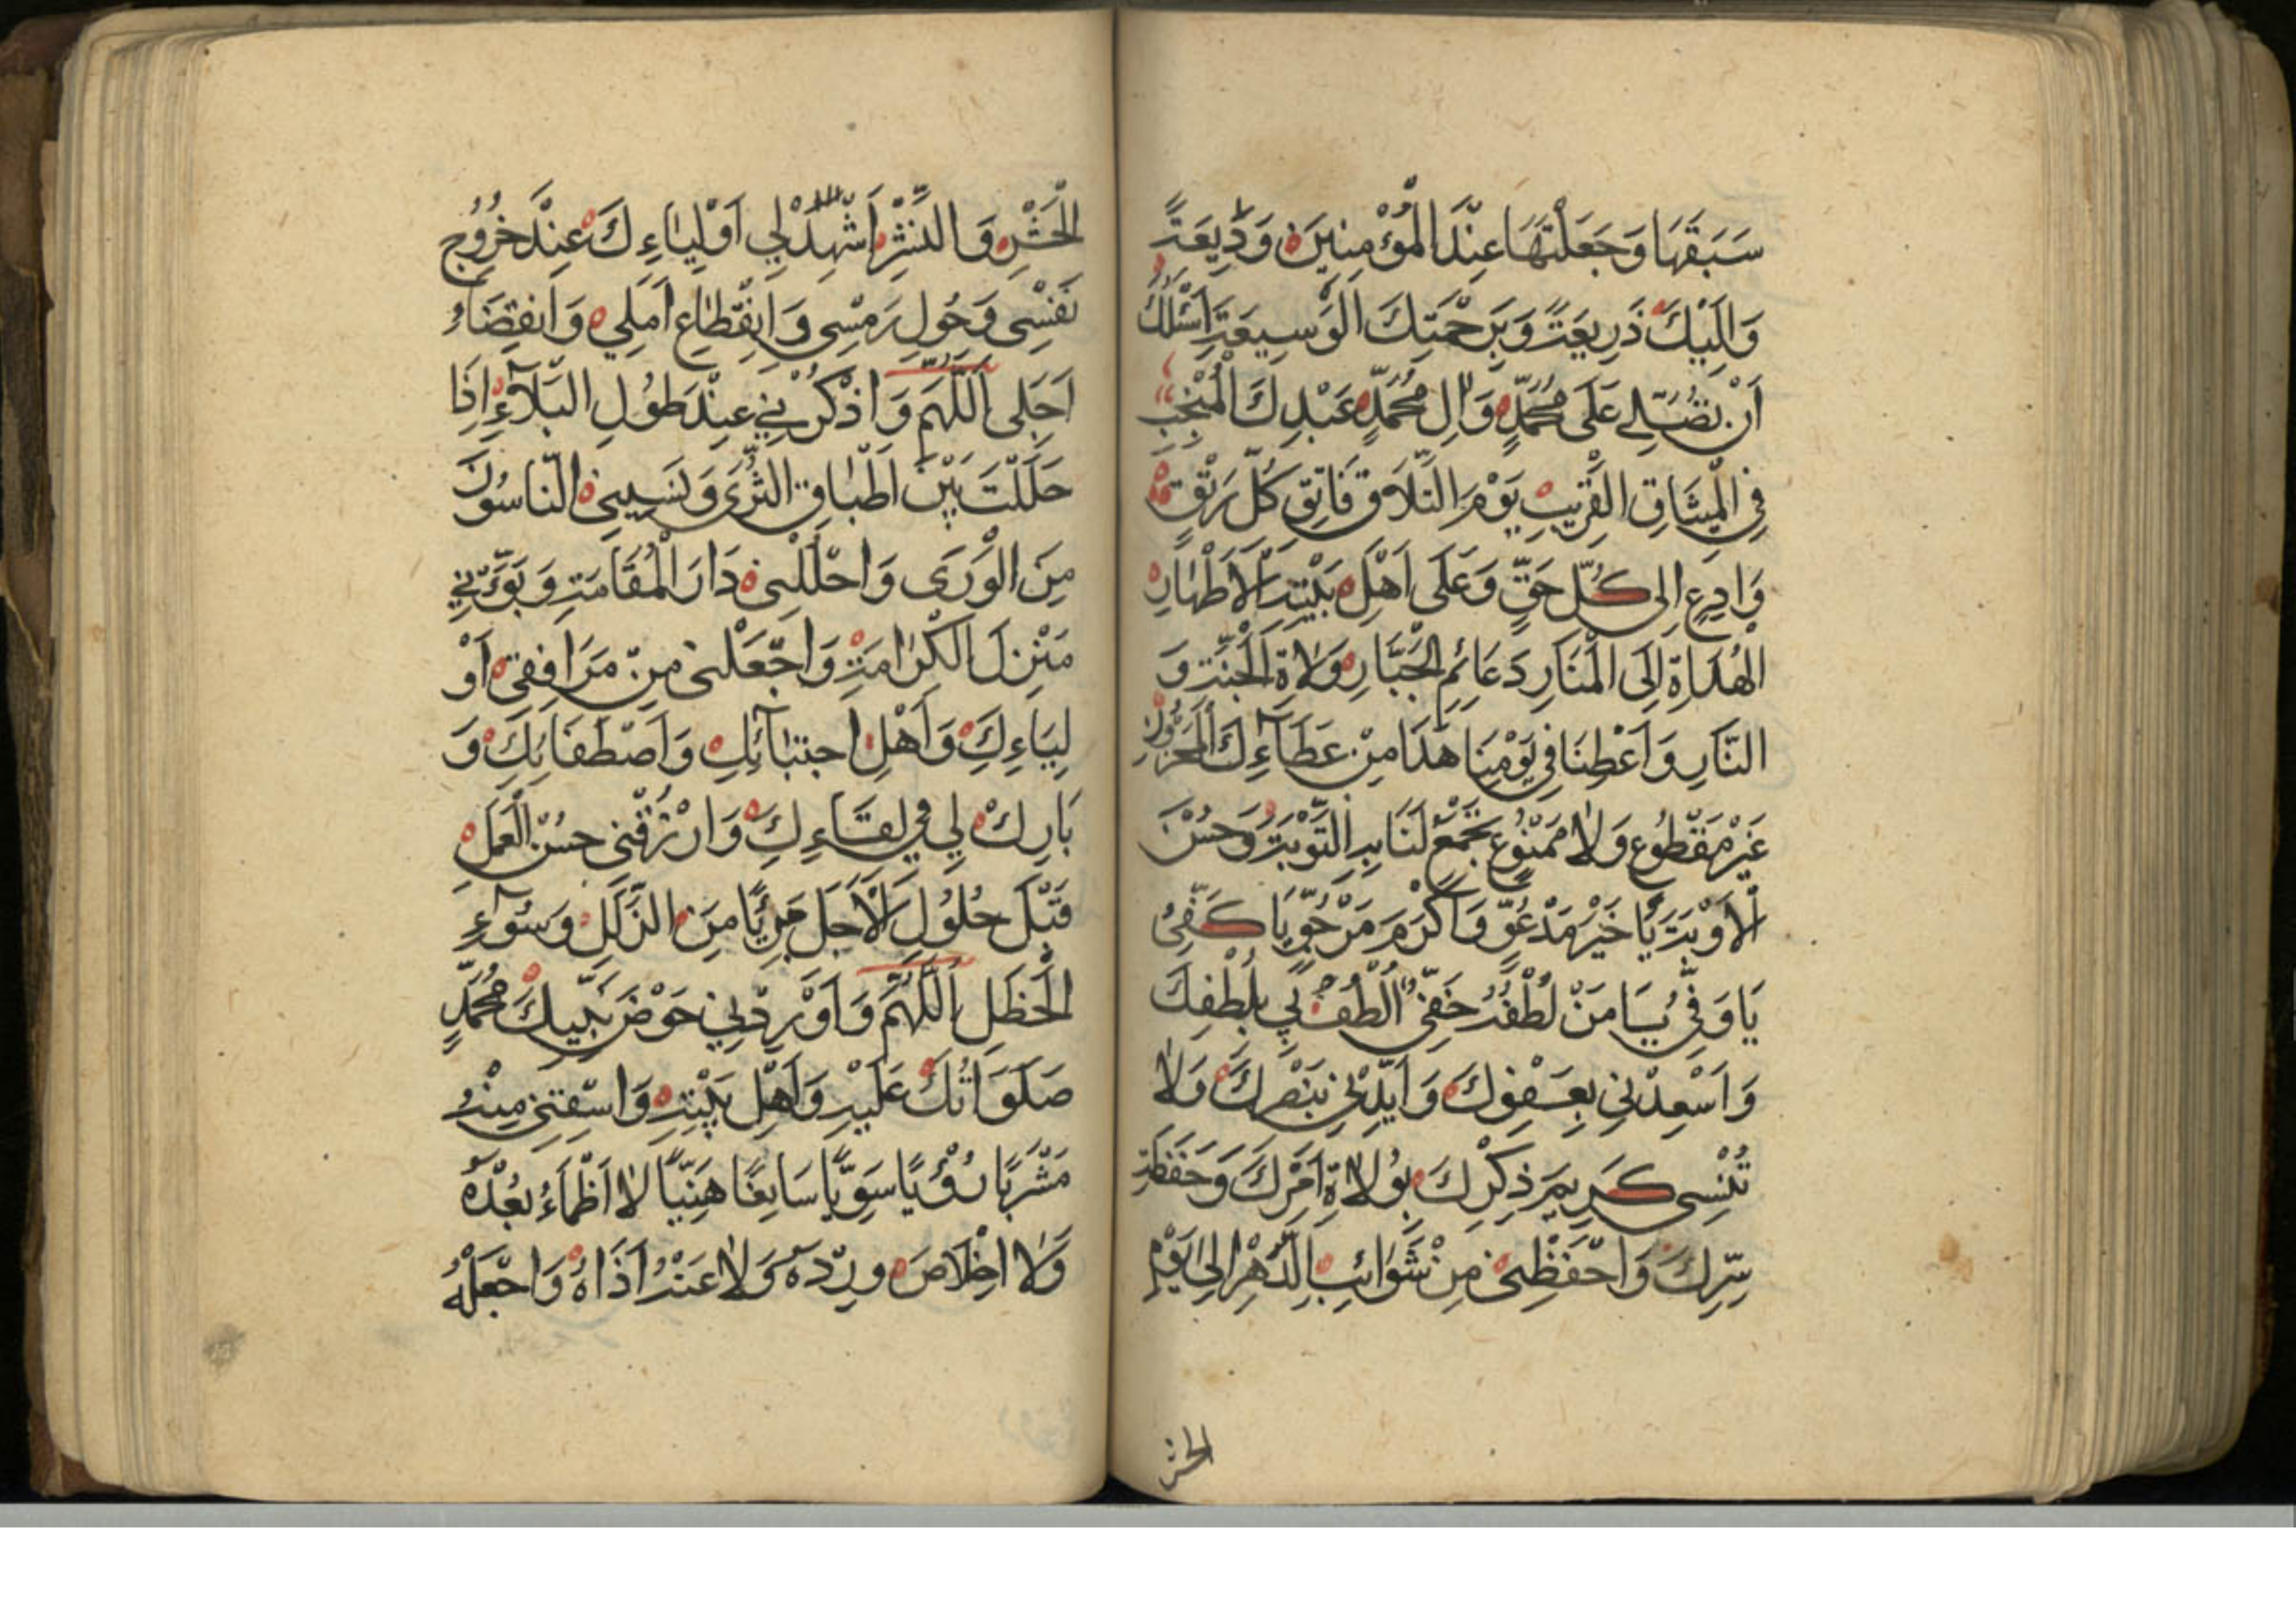 سَبَقَهَا وَجَعَلْتَهَا عِنْدَ الْمُؤْمِنِينَ وَدِيعَةً
وَاِلَيْكَ ذَرِيعَةً وَبِرَحْمَتِكَ الْوَسِيعَةِ اَسْئَلُكَ
اَنْ تُصَلِّيَ عَلَى مُحَمَّدٍ وَالِ مُحَمَّدٍ عَبْدِكَ الْمُنْتَجَبِ
فِي الْمِيثَاقِ الْقَرِيبِ يَوْمَ التَّلَاقِ فَاتِقِ كُلِّ رَتْقٍ
وَادِعٍ اِلى كُلِّ حَقٍّ وَعَلَى اَهْلِ بَيْتِهِ الْاَطْهَارِ
الْهُدَاةِ اِلَى الْمَنَارِ دَعَائِمِ الْجَبَّارِ وَلَاةِ الْجَنَّةِ وَ
النَّارِ وَاَعْطِنَا فِي يَوْمِنَا هَذَا مِنْ عَطَآءِكَ الْمَخْزُونِ
غَيْرَ مَقْطُوعٍ وَلَا مَمْنُوعٍ تَجْمَعُ لَنَا بِهِ التَّوْبَةَ وَحُسْنَ
الْاَوْبَةِ يَا خَيْرَ مَدْعُوٍّ وَاَكْرَمَ مَرْجُوٍّ يَا كَفِيُّ
يَا وَفِيُّ يَا مَنْ لُطْفُهُ خَفِيٌّ اُلْطُفْ لِي بِلُطْفِكَ
وَاَسْعِدْنِي بِعَفْوِكَ وَاَيِّدْنِي بِنَصْرِكَ وَلَا
تُنْسِي كَرِيمَ ذِكْرِكَ بِوُلَاةِ اَمْرِكَ وَحَفَظَةِ
سِرِّكَ وَاحْفَظْنِي مِنْ شَوَائِبِ الدَّهْرِ اِلى يَوْمِ
الحشر
الْحَشْرِ وَالنَّشْرِ اَشْهِدْ لِي اَوْلِيَاءِكَ عِنْدَ خُرُوجِ
نَفْسِي وَحُولِ رَمْسِي وَانْقِطَاعِ اَمَلِي وَانْقِضَاءِ
اَجَلِي اَللّهُمَّ وَاذْكُرْنِي عِنْدَ طُولِ الْبَلَآءِ اِذَا
حَلَلْتُ بَيْنَ اَطْبَاقِ الثَّرَى وَنَسِيَنِي النَّاسُونَ
مِنَ الْوَرَى وَاحْلُلْنِي دَارَ الْمُقَامَةِ وَبَوِّئْنِي
مَنْزِلَ الْكَرَامَةِ وَاجْعَلْنِي مِنْ مَرَافِقِي اَوْ
لِيَاءِكَ وَاَهْلِ اجْتِبَآئِكَ وَاصْطِفَائِكَ وَ
بَارِكْ لِي فِي لِقَاءِكَ وَارْزُقْنِي حُسْنَ الْعَمَلِ
قَبْلَ حُلُولِ الْاَجَلِ بَرِيًّا مِنَ الزَّلَلِ وَسُوٓءِ
الْخَطَلِ اَللّهُمَّ وَاَوْرِدْنِي حَوْضَ نَبِيِّكَ مُحَمَّدٍ
صَلَوَاتُكَ عَلَيْهِ وَاَهْلِ بَيْتِهِ وَاسْقِنِي مِنْهُ
مَشْرَبًا رَوِيًّا سَوِيًّا سَايِغًا هَنِيّئًا لَا اَظْمَاءُ بَعْدَهُ
وَلَا اخلَاصَ وِرْدَهُ وَلَا عَنْهُ اذَاهُ وَاجْعَلْهُ